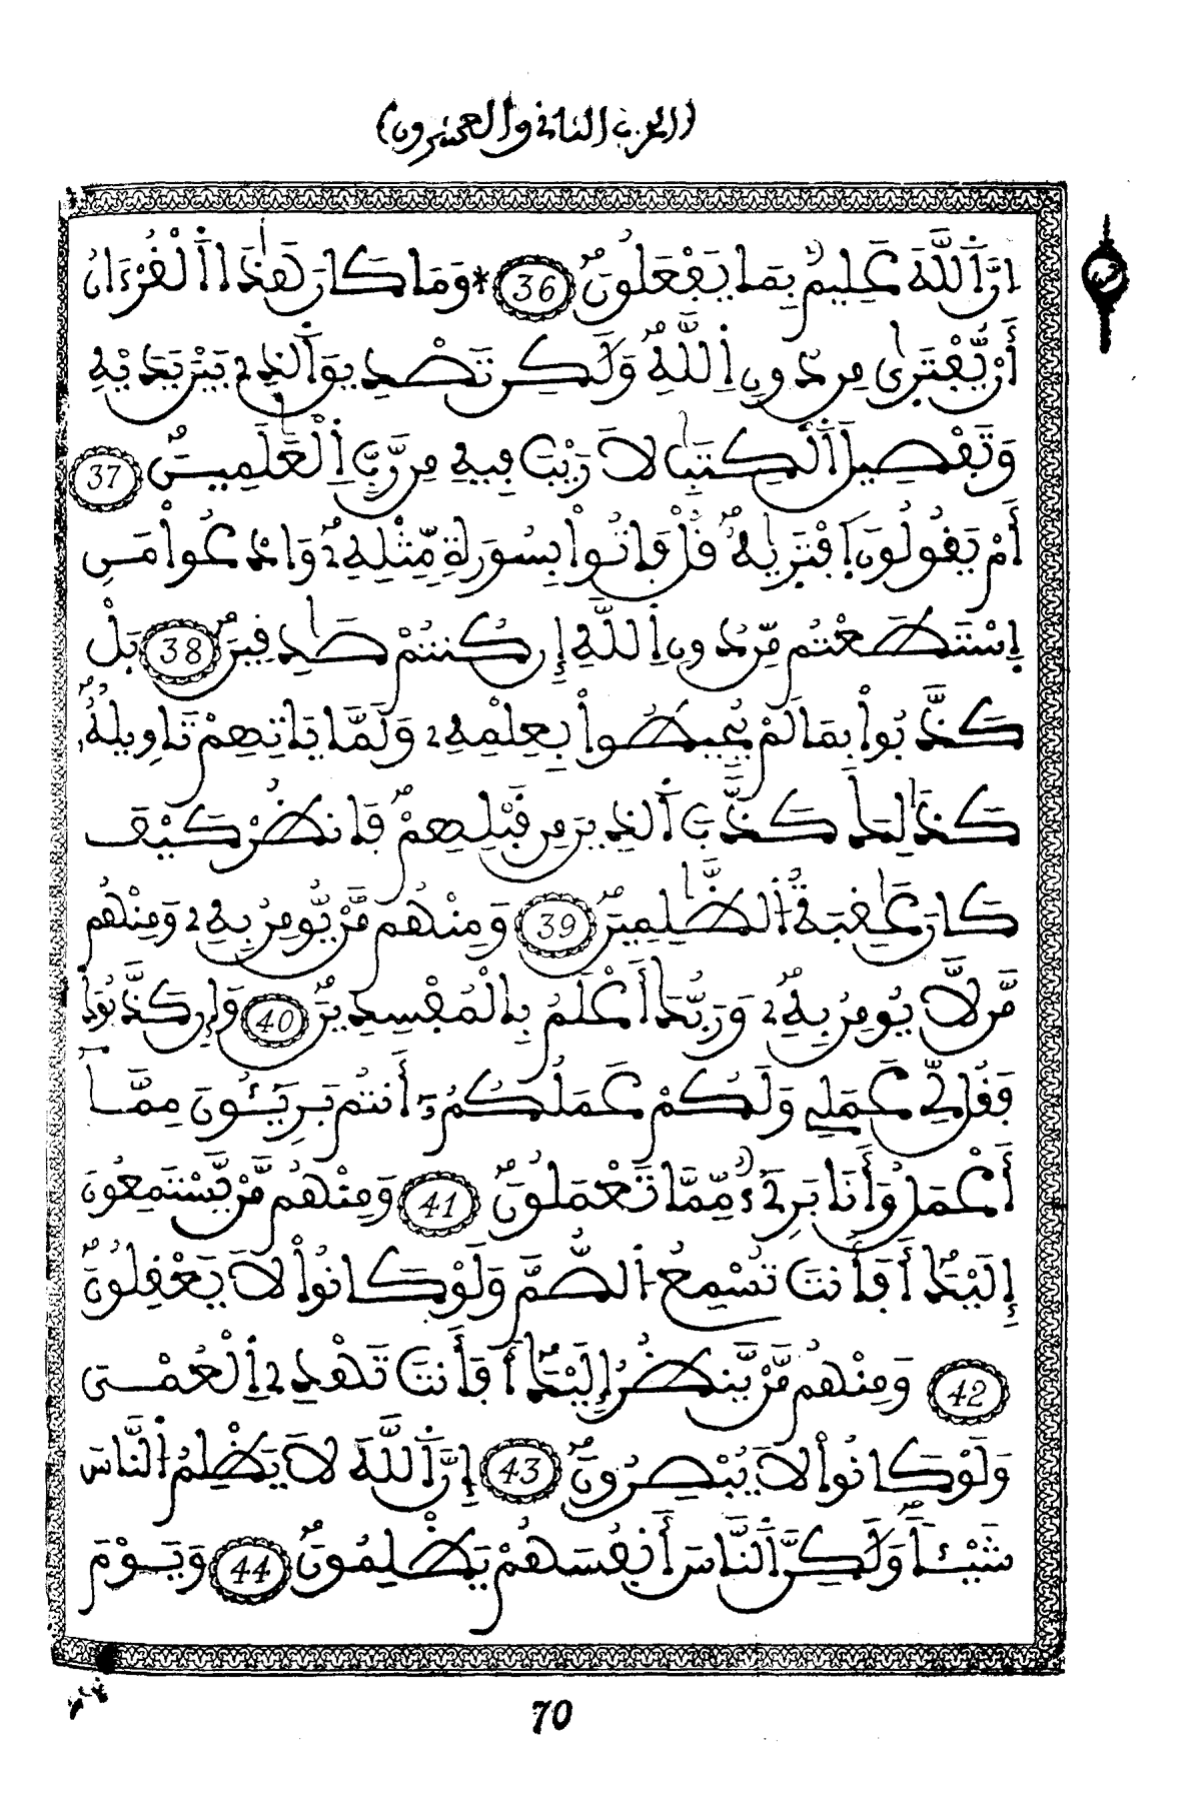 (الحزب الثاني والعشرون)
اِنَّ اَ۬للَّهَ عَلِيمُۢ بِمَا يَفْعَلُونَۖ 36 *وَمَا كَانَ هَٰذَا اَ۬لْقُرْءَانُ
أَنْ يُّفْتَرَىٰ مِن دُونِ اِ۬للَّهِۖ وَلَٰكِن تَصْدِيقَ اَ۬لذِے بَيْنَ يَدَيْهِ
وَتَفْصِيلَ اَ۬لْكِتَٰبِ لَا رَيْبَ فِيهِ مِن رَّبِّ اِ۬لْعَٰلَمِينَۖ 37
أَمْ يَقُولُونَ اَ۪فْتَر۪يٰهُۖ قُلْ فَاتُواْ بِسُورَةٖ مِّثْلِهِۦۖ وَادْعُواْ مَنِ
اِ۪سْتَطَعْتُم مِّن دُونِ اِ۬للَّهِ إِن كُنتُمْ صَٰدِقِينَۖ 38 بَلْ
كَذَّبُواْ بِمَا لَمْ يُحِيطُواْ بِعِلْمِهِۦ وَلَمَّا يَاتِهِمْ تَاوِيلُهُۥۖ
كَذَٰلِكَ كَذَّبَ اَ۬لذِينَ مِن قَبْلِهِمْۖ فَانظُرْ كَيْفَ
كَانَ عَٰقِبَةُ اُ۬لظَّٰلِمِينَۖ 39 وَمِنْهُم مَّنْ يُّومِنُ بِهِۦ وَمِنْهُم
مَّن لَّا يُومِنُ بِهِۦۖ وَرَبُّكَ أَعْلَمُ بِالْمُفْسِدِينَۖ 40 وَإِن كَذَّبُوكَ
فَقُل لِّے عَمَلِے وَلَكُمْ عَمَلُكُمُۥٓ أَنتُم بَرِيٓـُٔونَ مِمَّآ
أَعْمَلُ وَأَنَا بَرِےٓءٞ مِّمَّا تَعْمَلُونَۖ 41 وَمِنْهُم مَّنْ يَّسْتَمِعُونَ
إِلَيْكَۖ أَفَأَنتَ تُسْمِعُ اُ۬لصُّمَّ وَلَوْ كَانُواْ لَا يَعْقِلُونَۖ
42 وَمِنْهُم مَّنْ يَّنظُرُ إِلَيْكَۖ أَفَأَنتَ تَهْدِے اِ۬لْعُمْىَ
وَلَوْ كَانُواْ لَا يُبْصِرُونَۖ 43 إِنَّ اَ۬للَّهَ لَا يَظْلِمُ اُ۬لنَّاسَ
شَيْـٔاٗۖ وَلَٰكِنَّ اَ۬لنَّاسَ أَنفُسَهُمْ يَظْلِمُونَۖ 44 وَيَوْمَ
70